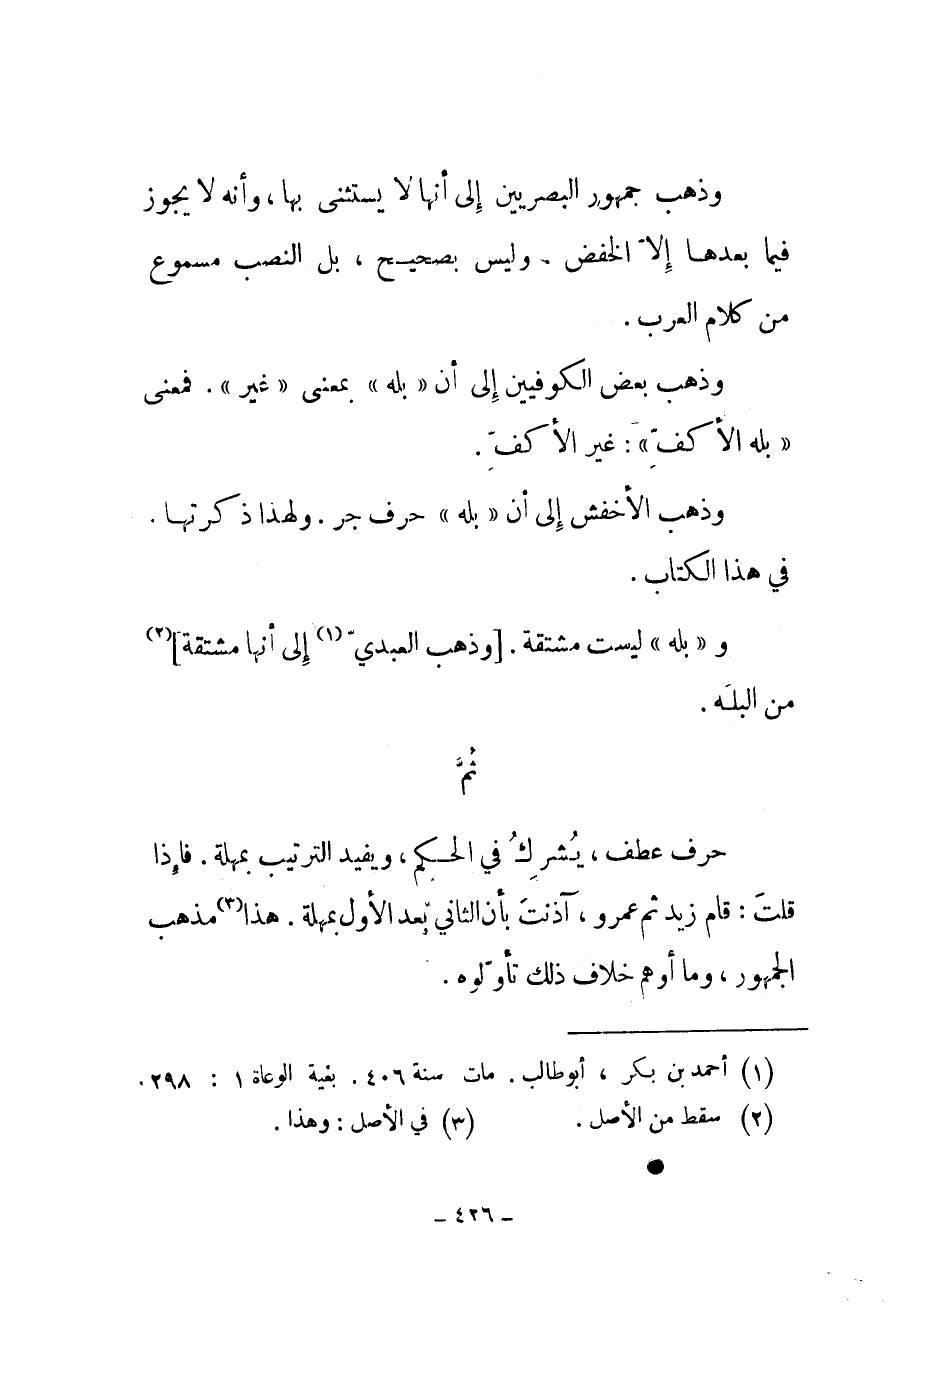 وذهب جمهور البصريين إلى أنها لا يستثنى بها، وأنه لا يجوز
فيما بعدها إلاّ الخفض . وليس بصحيح ، بل النصب مسموع
من كلام العرب .
وذهب بعض الكوفيين إلى أن « بله » بمعنى « غير » . فمعنى
« بله الأكفِّ » : غير الأكفِّ .
وذهب الأخفش إلى أن « بله » حرف جر . ولهذا ذكرتها .
في هذا الكتاب .
و « بله » ليست مشتقة . [وذهب العبديّ (١) إلى أنها مشتقة](٢)
من البلَه .
ثُمَّ
حرف عطف ، يُشرِكُ في الحكم ، ويفيد الترتيب بمهلة . فإذا
قلتَ : قام زيد ثم عمرو ، آذنتَ بأن الثاني بَعد الأول بمهلة . هذا(٣) مذهب
الجمهور ، وما أوهم خلاف ذلك تأوّلوه .
(١) أحمد بن بكر ، أبو طالب . مات سنة ٤٠٦ . بغية الوعاة ١ : ٢٩٨ .
(٢) سقط من الأصل . (٣) في الأصل : وهذا .
– ٤٢٦ –